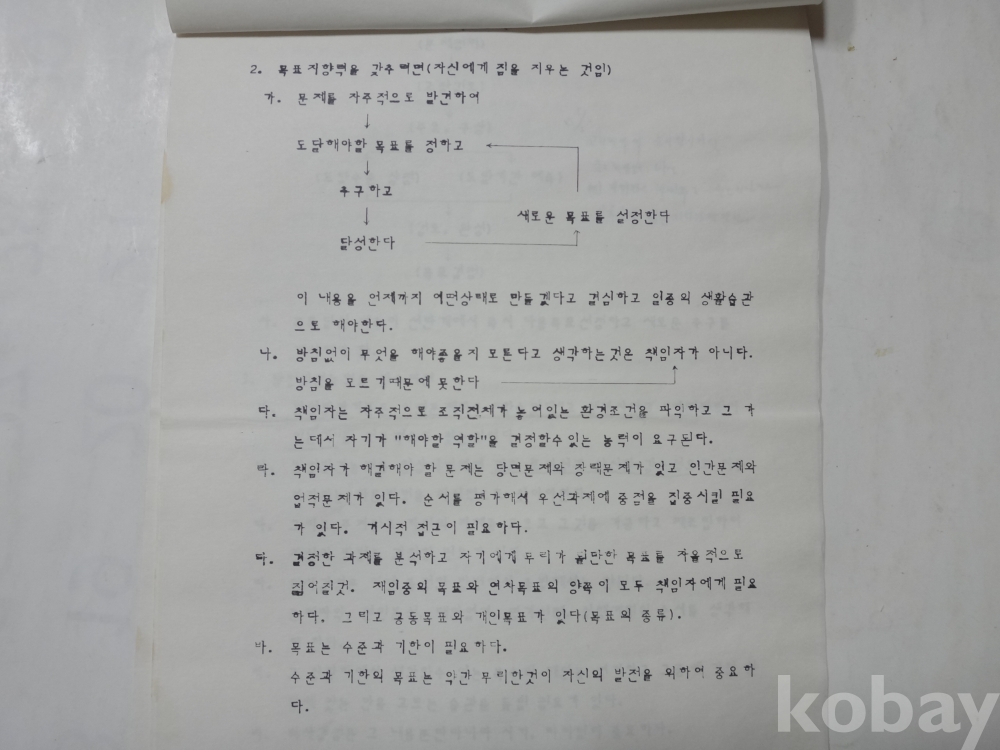 2. 목표지향력을 갖추려면(자신에게 짐을 지우는 것임)
가. 문제를 자주적으로 발견하여
↓
도달해야할 목표를 정하고
↓
추구하고
↓
새로운 목표를 설정한다
달성한다
이 내용을 언제까지 어떤상태로 만들겠다고 결심하고 일종의 생활습관
으로 해야한다.
나. 방침없이 무엇을 해야좋을지 모른다고 생각하는것은 책임자가 아니다.
방침을 모르기때문에 못한다
다. 책임자는 자주적으로 조직전체가 놓여있는 환경조건을 파악하고 그 가
는데서 자기가 "해야할 역할"을 결정할수있는 능력이 요구된다.
라. 책임자가 해결해야 할 문제는 당면문제와 장래문제가 있고 인간문제와
업적문제가 있다. 순서를 평가해서 우선과제에 중점을 집중시킬 필요
가 있다. 거시적 접근이 필요하다.
마. 결정한 과제를 분석하고 자기에게 무리가 될만한 목표를 자율적으로
짊어질것. 재임중의 목표와 연차목표의 양쪽이 모두 책임자에게 필요
하다. 그리고 공동목표와 개인목표가 있다(목표의 종류).
바. 목표는 수준과 기한이 필요하다.
수준과 기한의 목표는 약간 무리한것이 자신의 발전을 위하여 중요하
다.
kobay